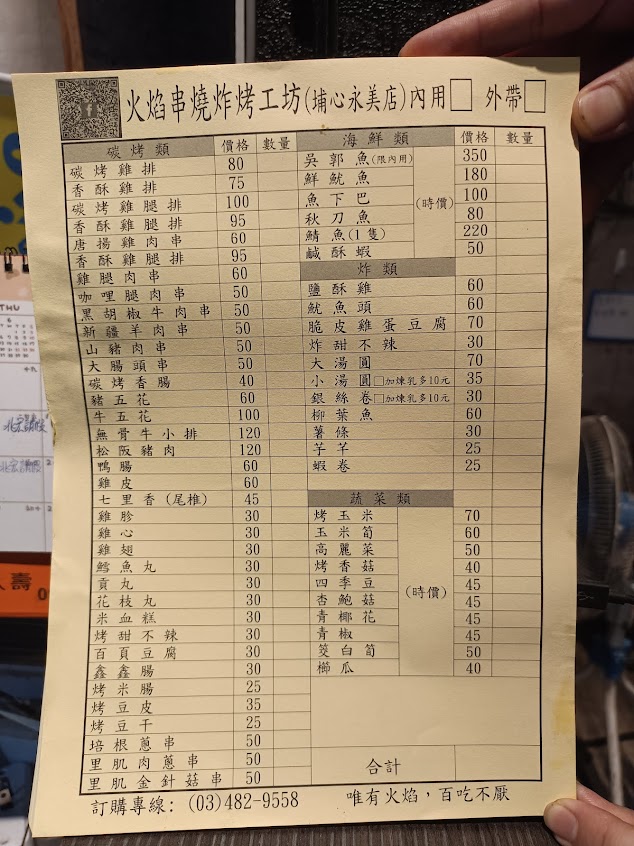 火焰串燒炸烤工坊(埔心永美店)內用□ 外帶□
碳烤類 價格 數量
碳烤雞排 80
香酥雞排 75
碳烤雞腿排 100
香酥雞腿排 95
唐揚雞肉串 60
香酥雞腿排 95
雞腿肉串 60
咖哩腿肉串 50
黑胡椒牛肉串 50
新疆羊肉串 50
山豬肉串 50
大腸頭串 50
碳烤香腸 40
豬五花 60
牛五花 100
無骨牛小排 120
松阪豬肉 120
鴨腸 60
雞皮 60
七里香(尾椎) 45
雞胗 30
雞心 30
雞翅 30
鱈魚丸 30
貢丸 30
花枝丸 30
米血糕 30
烤甜不辣 30
百頁豆腐 30
鑫鑫腸 30
烤米腸 25
烤豆皮 35
烤豆干 25
培根蔥串 50
里肌肉蔥串 50
里肌金針菇串 50
海鮮類 價格 數量
吳郭魚(限內用) 350
鮮魷魚 180
魚下巴 (時價) 100
秋刀魚 80
鯖魚(1隻) 220
鹹酥蝦 50
炸類
鹽酥雞 60
魷魚頭 60
脆皮雞蛋豆腐 70
炸甜不辣 30
大湯圓 70
小湯圓□加煉乳多10元 35
銀絲卷□加煉乳多10元 30
柳葉魚 60
薯條 30
芋芊 25
蝦卷 25
蔬菜類
烤玉米 70
玉米筍 60
高麗菜 50
烤香菇 40
四季豆 (時價) 45
杏鮑菇 45
青椰花 45
青椒 45
筊白筍 50
櫛瓜 40
合計
訂購專線: (03)482-9558 唯有火焰，百吃不厭